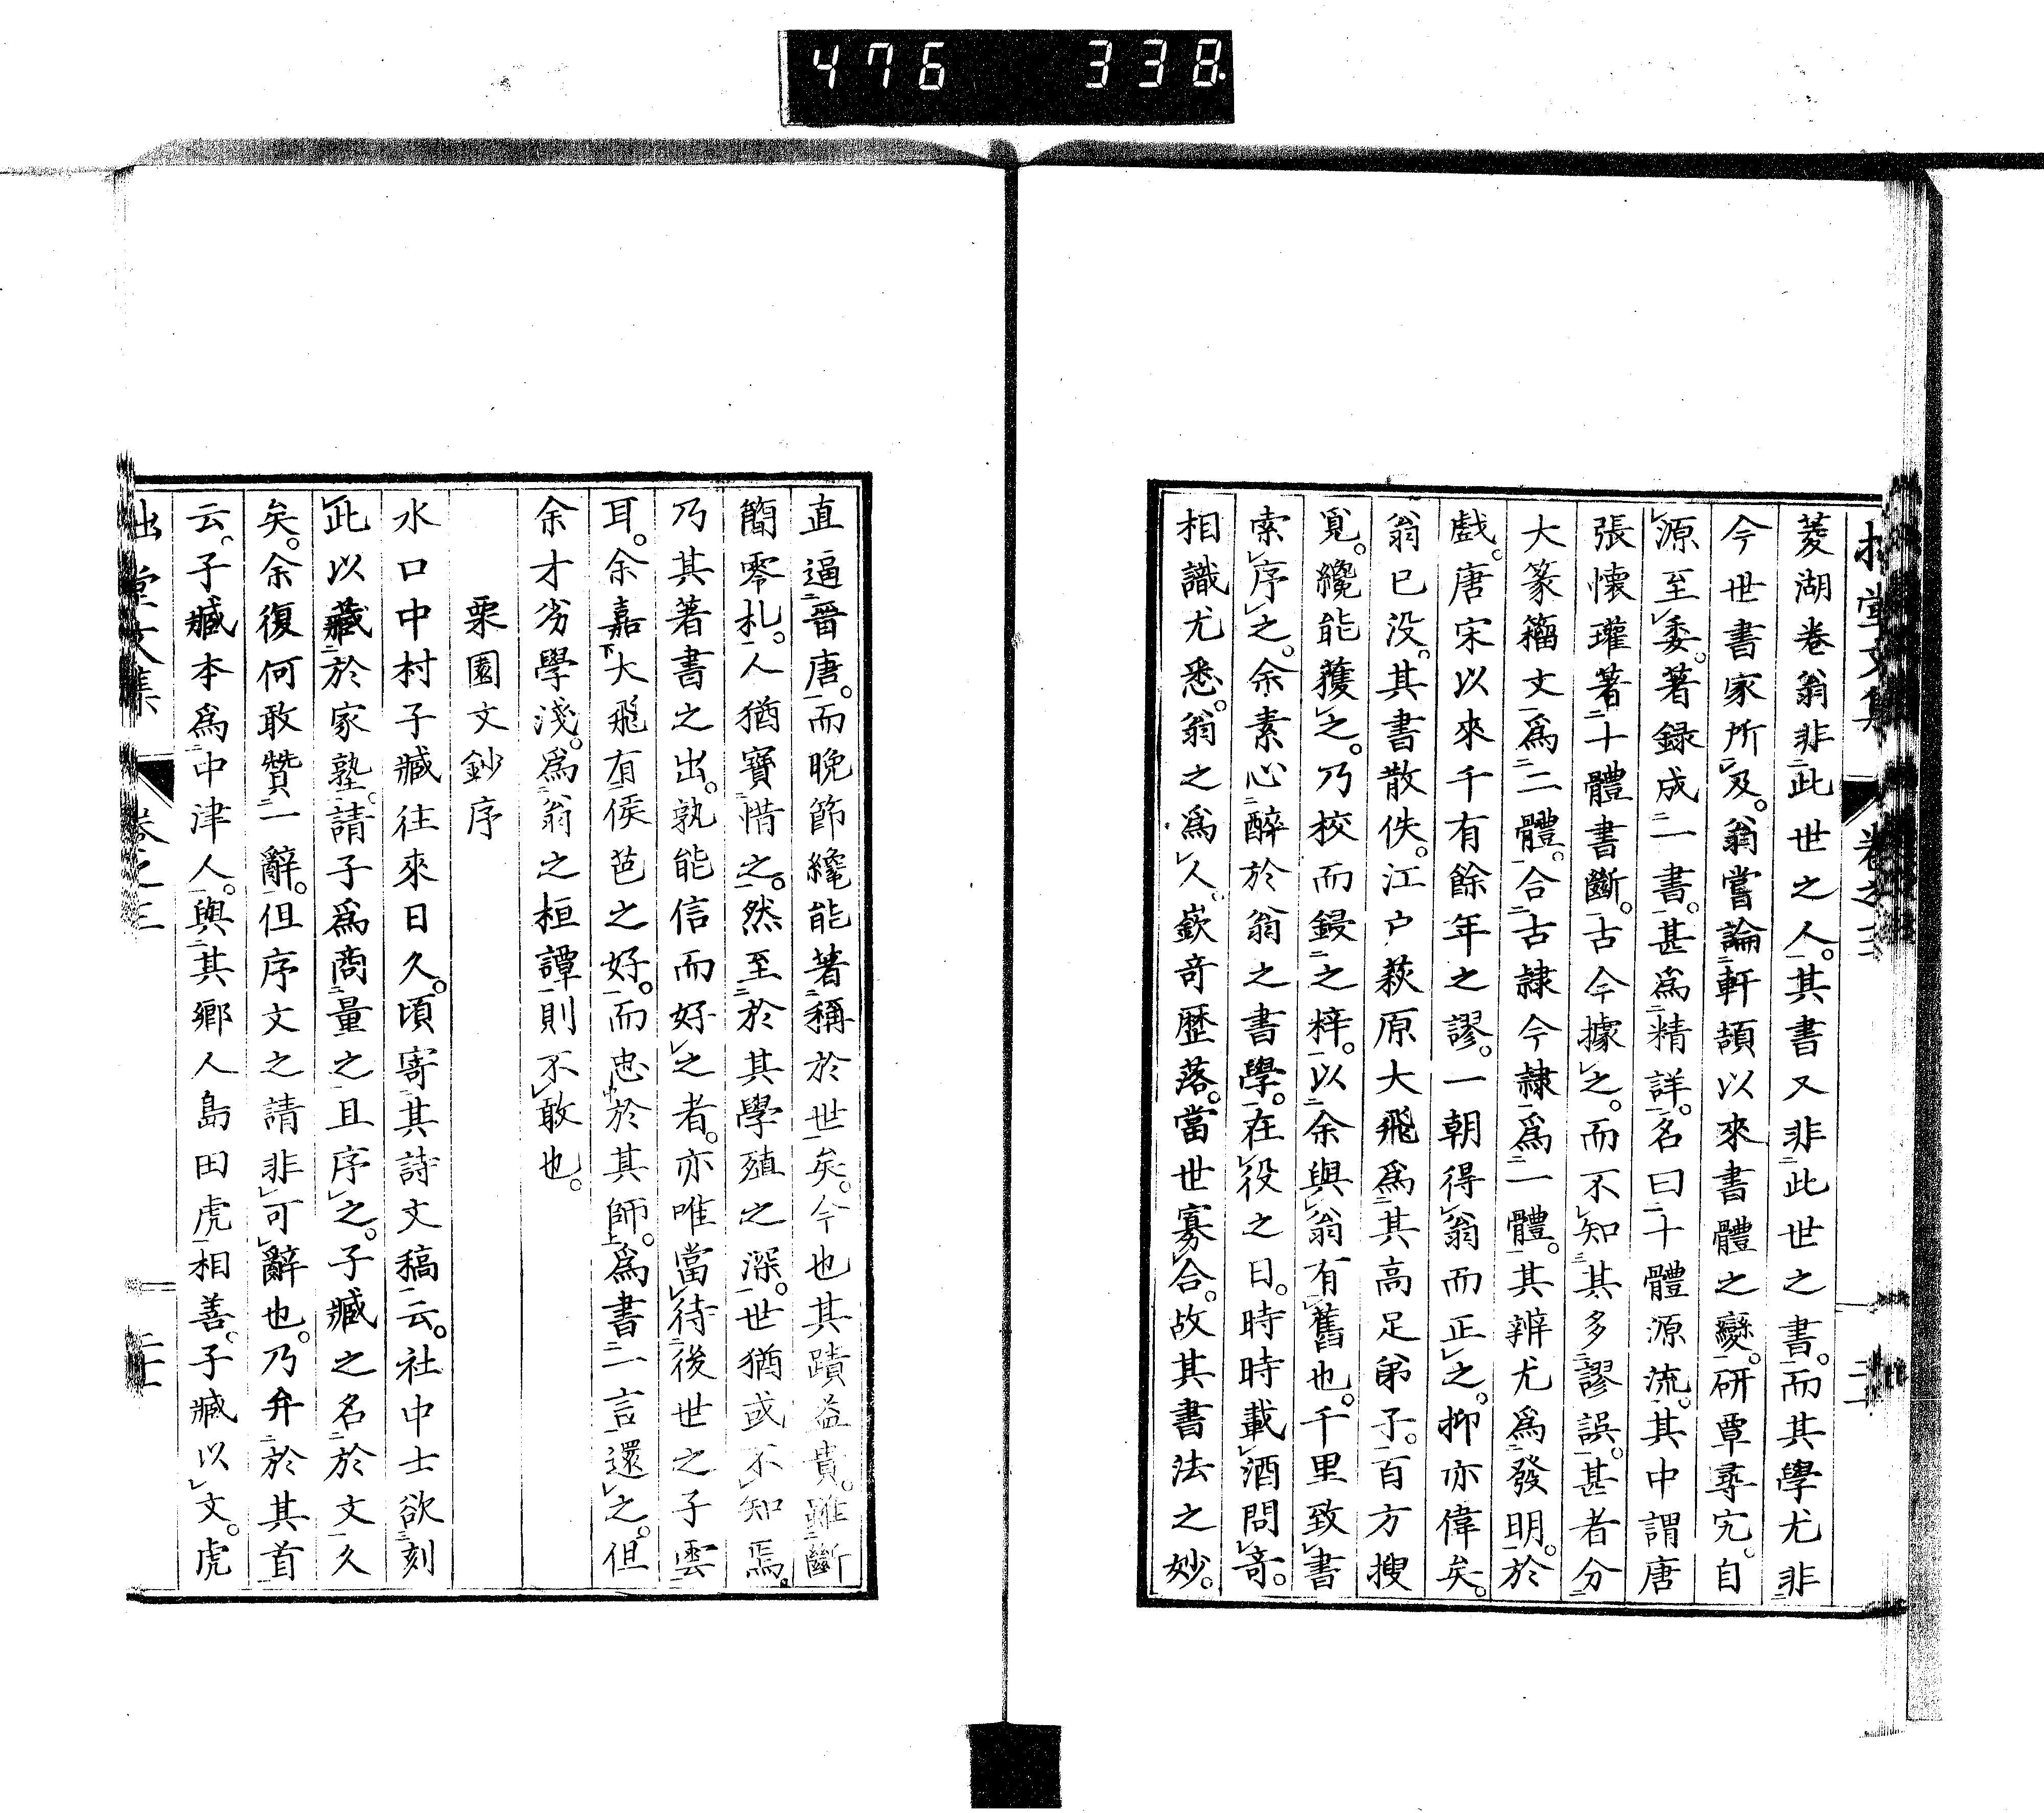 476 338
菱湖卷翁非此世之人。其書又非此世之書。而其學尤非
今世書家所及。翁嘗論軒頡以來書體之變。研覃尋究。自
源至委。著録成一書。甚爲精詳。名曰十體源流。其中謂唐
張懷瓘著十體書斷。古今據之。而不知其多謬誤。甚者分
大篆籀文爲二體。合古隷今隷爲一體。其辨尤爲發明。於
戲。唐宋以來千有餘年之謬。一朝得翁而正之。抑亦偉矣。
翁已没。其書散佚。江戸萩原大飛爲其高足弟子。百方搜
覓。纔能獲之。乃校而鋟之梓。以余與翁有舊也。千里致書
索序之。余素心醉於翁之書學。在役之日。時時載酒問奇。
相識尤悉。翁之爲人。嶔奇歴落。當世寡合。故其書法之妙。
直逼晉唐。而晩節纔能著稱於世矣。今也其蹟益貴。雖斷
簡零札。人猶寶惜之。然至於其學殖之深。世猶或不知焉。
乃其著書之出。孰能信而好之者。亦唯當待後世之子雲
耳。余嘉大飛有侯芭之好。而忠於其師。爲書一言還之。但
余才劣學淺。爲翁之桓譚則不敢也。
栗園文鈔序
水口中村子臧往來日久。頃寄其詩文稿云。社中士欲刻
此以藏於家塾。請子爲商量之且序之。子臧之名於文久
矣。余復何敢贊一辭。但序文之請非可辭也。乃弁於其首
云。子臧本爲中津人。與其郷人島田虎相善。子臧以文。虎
堂文集 卷之三